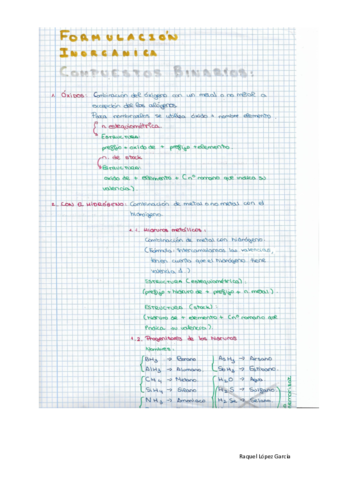 FORMULACIÓN
INORGÁNICA
COMPUESTOS BINARIOS:
1. ÓXIDOS: Combinación del oxígeno con un metal o no metal a
excepción del los alógenos.
Para nombrarlos se utiliza óxido + nombre elemento
n. estequiométrica
ESTRUCTURA:
prefijo + óxido de + prefijo + elemento.
n. de stock
ESTRUCTURA:
óxido de + elemento + (nº romano que indica su
valencia)
2. CON EL HIDRÓGENO: Combinación de metal o no metal con el
hidrógeno.
2.1. Hidruros metálicos:
Combinación de metal con hidrógeno.
(Fórmula: intercambiamos las valencias,
tener cuenta que el hidrógeno tiene
valencia 1.)
ESTRUCTURA (estequiométrica):
(prefijo + hidruro de + prefijo + n. metal)
ESTRUCTURA (stock):
(hidruro de + elemento + (nº romano que
indica su valencia).
2.2. Progenitores de los hidruros
NOMBRES:
BH3 → Borano AsH3 → Arsano
AlH3 → Alumano SbH3 → Estibano
CH4 → Metano H2O → Agua
SiH4 → Silano H2S → Sulfano
NH3 → Amoniaco H2Se → Selano
Raquel López García